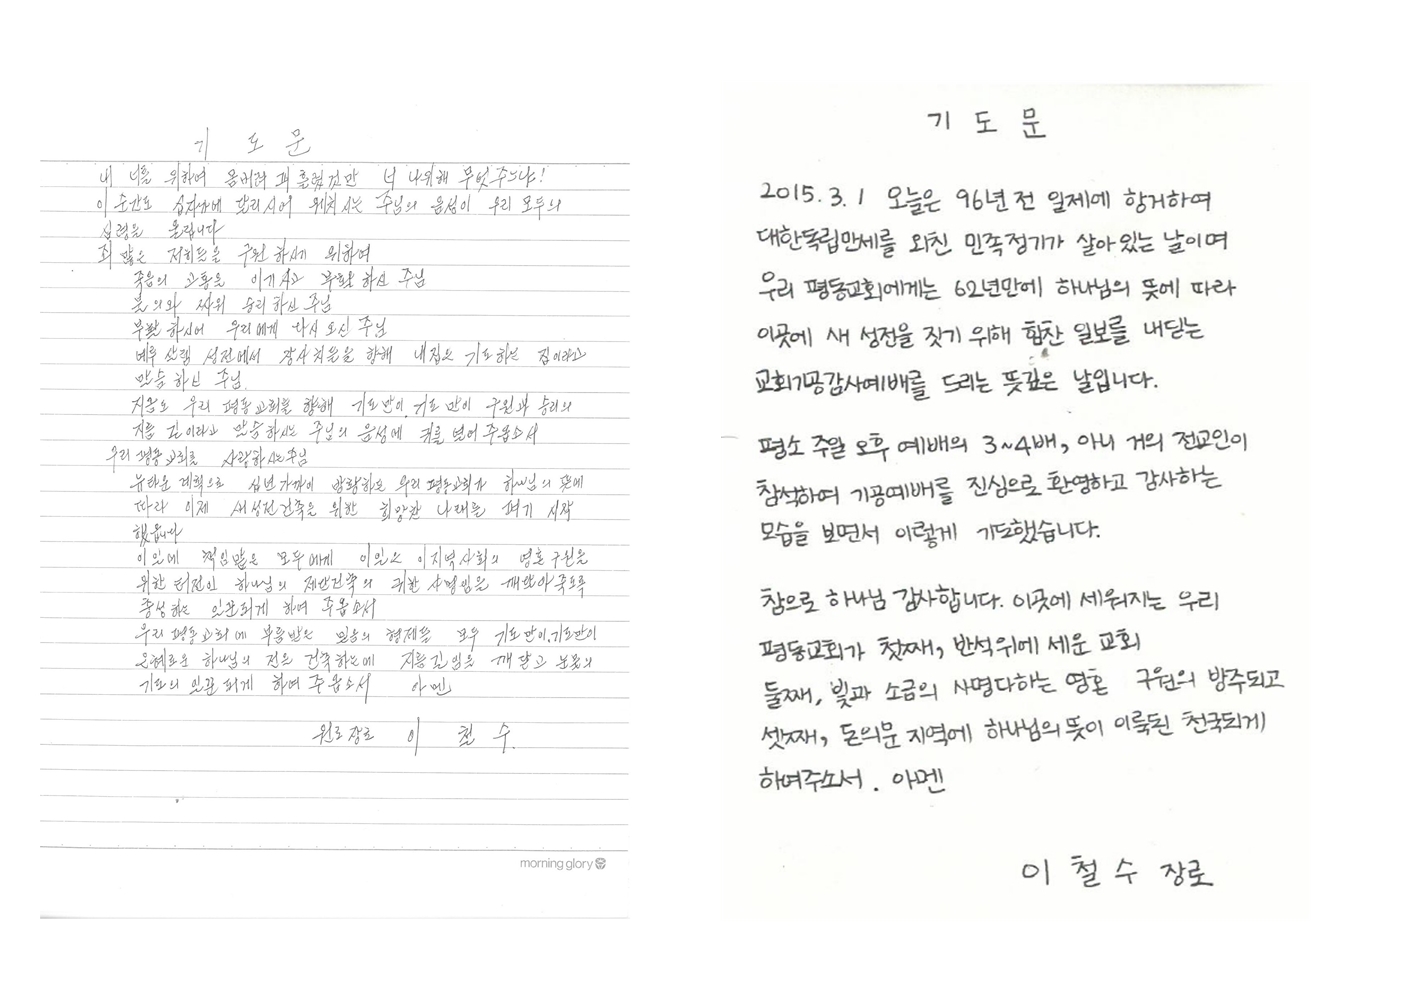 기 도 문
내 너를 위하여 몸버려 피 흘렸건만 너 나위해 무엇주느냐!
이 순간도 십자가에 달리시어 외치시는 주님의 음성이 우리 모두의
심령을 울립니다
죄 많은 저희들을 구원 하시기 위하여
죽음의 고통을 이기시고 부활 하신 주님
불의와 싸워 승리 하신 주님
부활 하시어 우리에게 다시 오신 주님
예루살렘 성전에서 장사치들을 향해 내집은 기도하는 집이라고
말씀 하신 주님
지금도 우리 평동교회를 향해 기도만이, 기도만이 구원과 승리의
지름길이라고 말씀하시는 주님의 음성에 귀를 열어 주옵소서
우리 평동교회를 사랑하시는 주님
계획으로 십년가까이 방황하는 우리 평동교회가 하나님의 뜻에
따라 이제 새성전건축을 위한 희망찬 나래를 펴기 시작
했읍니다
이일에 책임맡은 모두에게 이일은 이지역사회의 영혼구원을
위한 터전인 하나님의 제단건축의 귀한 사명임을 깨달아 죽도록
충성하는 일꾼되게 하여 주옵소서
우리 평동교회에 부름받은 믿음의 형제들 모두 기도만이, 기도만이
은혜로운 하나님의 전을 건축하는데 지름길임을 깨달고 눈물의
기도의 일꾼 되게 하여 주옵소서 아멘
원로장로 이 철 수.
morning glory
기 도 문
2015.3.1 오늘은 96년전 일제에 항거하여
대한독립만세를 외친 민족정기가 살아있는 날이며
우리 평동교회에게는 62년만에 하나님의 뜻에 따라
이곳에 새 성전을 짓기 위해 힘찬 일보를 내딛는
교회기공감사예배를 드리는 뜻깊은 날입니다.
평소 주일 오후 예배의 3~4배, 아니 거의 전교인이
참석하여 기공예배를 진심으로 환영하고 감사하는
모습을 보면서 이렇게 기도했습니다.
참으로 하나님 감사합니다. 이곳에 세워지는 우리
평동교회가 첫째, 반석위에 세운 교회
둘째, 빛과 소금의 사명다하는 영혼 구원의 방주되고
셋째, 돈의문 지역에 하나님의 뜻이 이룩된 천국되게
하여주소서. 아멘
이 철 수 장로